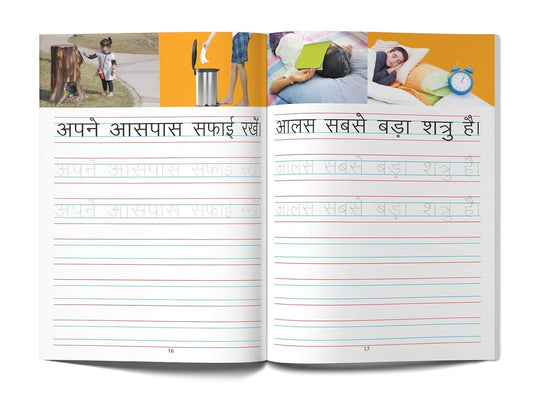 अपने आसपास सफाई रखें।
अपने आसपास सफाई रखें
अपने आसपास सफाई रखें
16
आलस सबसे बड़ा शत्रु है।
आलस सबसे बड़ा शत्रु है।
आलस सबसे बड़ा शत्रु है।
17